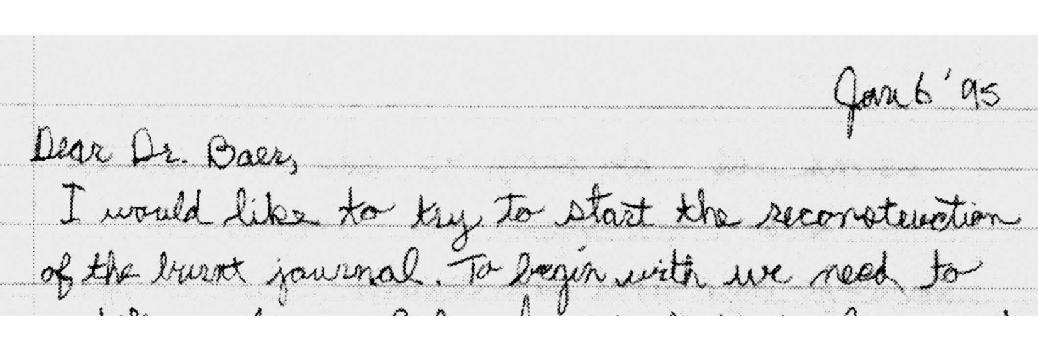 Jan 6 '95
Dear Dr. Baer,
I would like to try to start the reconstruction
of the burnt journal. To begin with we need to